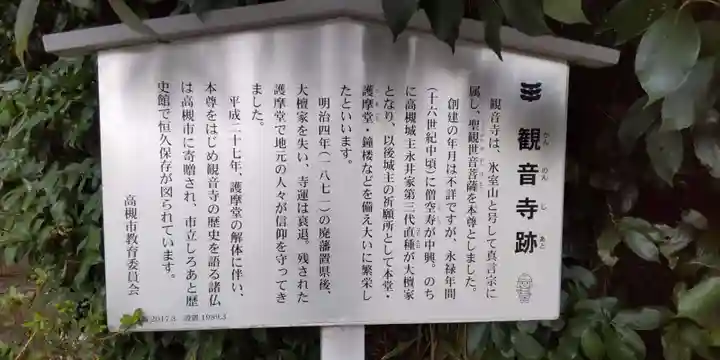 観音寺跡
かん のん じ あと
観音寺は、氷室山と号して真言宗に
属し、聖観世音菩薩を本尊としました。
創建の年月は不詳ですが、永禄年間
(十六世紀中頃)に僧空寿が中興。のち
に高槻城主永井家第三代直種が大檀家
となり、以後城主の祈願所として本堂・
護摩堂・鐘楼などを備え大いに繁栄し
たといいます。
明治四年(一八七一)の廃藩置県後、
大檀家を失い、寺運は衰退。残された
護摩堂で地元の人々が信仰を守ってき
ました。
平成二十七年、護摩堂の解体に伴い、
本尊をはじめ観音寺の歴史を語る諸仏
は高槻市に寄贈され、市立しろあと歴
史館で恒久保存が図られています。
高槻市教育委員会
2017.3. 設置 1989.3